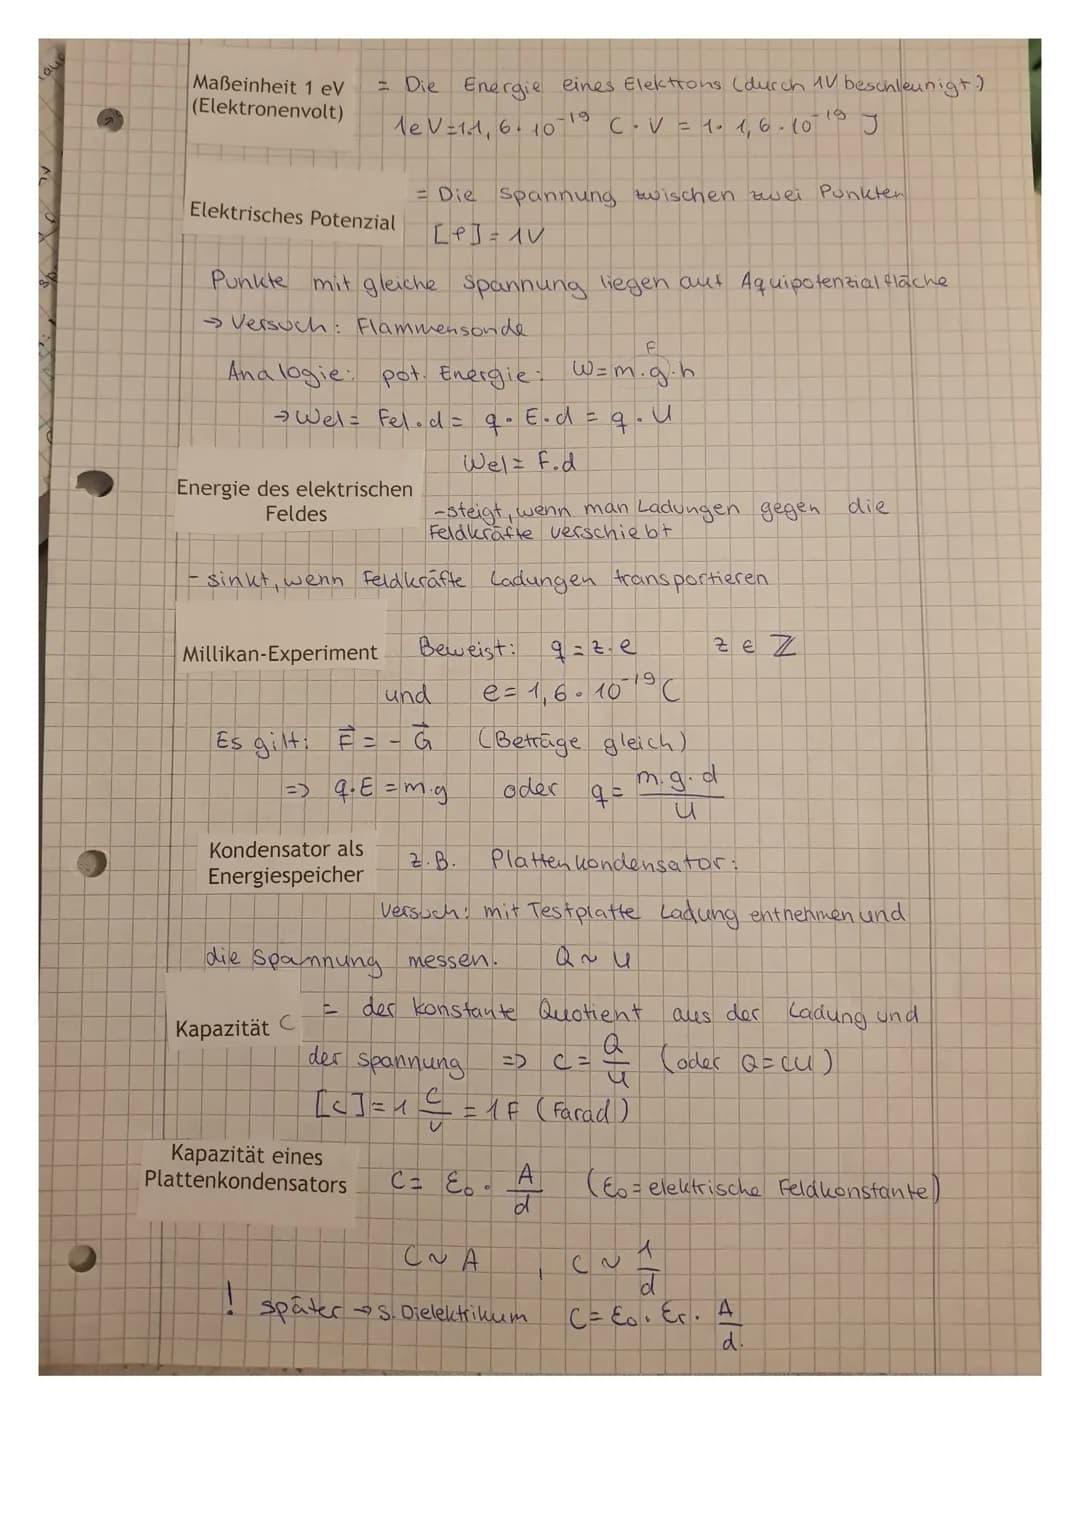 Maßeinheit 1 eV = Die Energie eines Elektrons (durch 1V beschleunigt)
(Elektronenvolt) 1eV=1·1,6·10⁻¹⁹ C·V = 1·1,6·10⁻¹⁹ J
= Die Spannung zwischen zwei Punkten
Elektrisches Potenzial
[φ]=1V
Punkte mit gleiche Spannung liegen auf Äquipotenzialfläche
→ Versuch: Flammensonde
F
Analogie: pot. Energie: W=m·g·h
→ Wel= Fel·d= q·E·d = q·U
Wel= F·d
Energie des elektrischen
Feldes -steigt, wenn man Ladungen gegen die
Feldkräfte verschiebt
- sinkt, wenn Feldkräfte Ladungen transportieren
Millikan-Experiment Beweist: q=z·e z ∈ ℤ
und e=1,6·10⁻¹⁹C
Es gilt: F⃗ = - G⃗ (Beträge gleich)
=> q·E=m·g oder q= m·g·d/U
Kondensator als
Energiespeicher z.B. Plattenkondensator:
Versuch: mit Testplatte Ladung entnehmen und
die Spannung messen. Q~U
Kapazität C = der konstante Quotient aus der Ladung und
der Spannung => C= Q/U (oder Q=CU)
[C]=1 C/V = 1F (Farad)
Kapazität eines
Plattenkondensators C= ε₀· A/d (ε₀=elektrische Feldkonstante)
C~A , C~ 1/d
! später → s. Dielektrikum C=ε₀·εr· A/d.